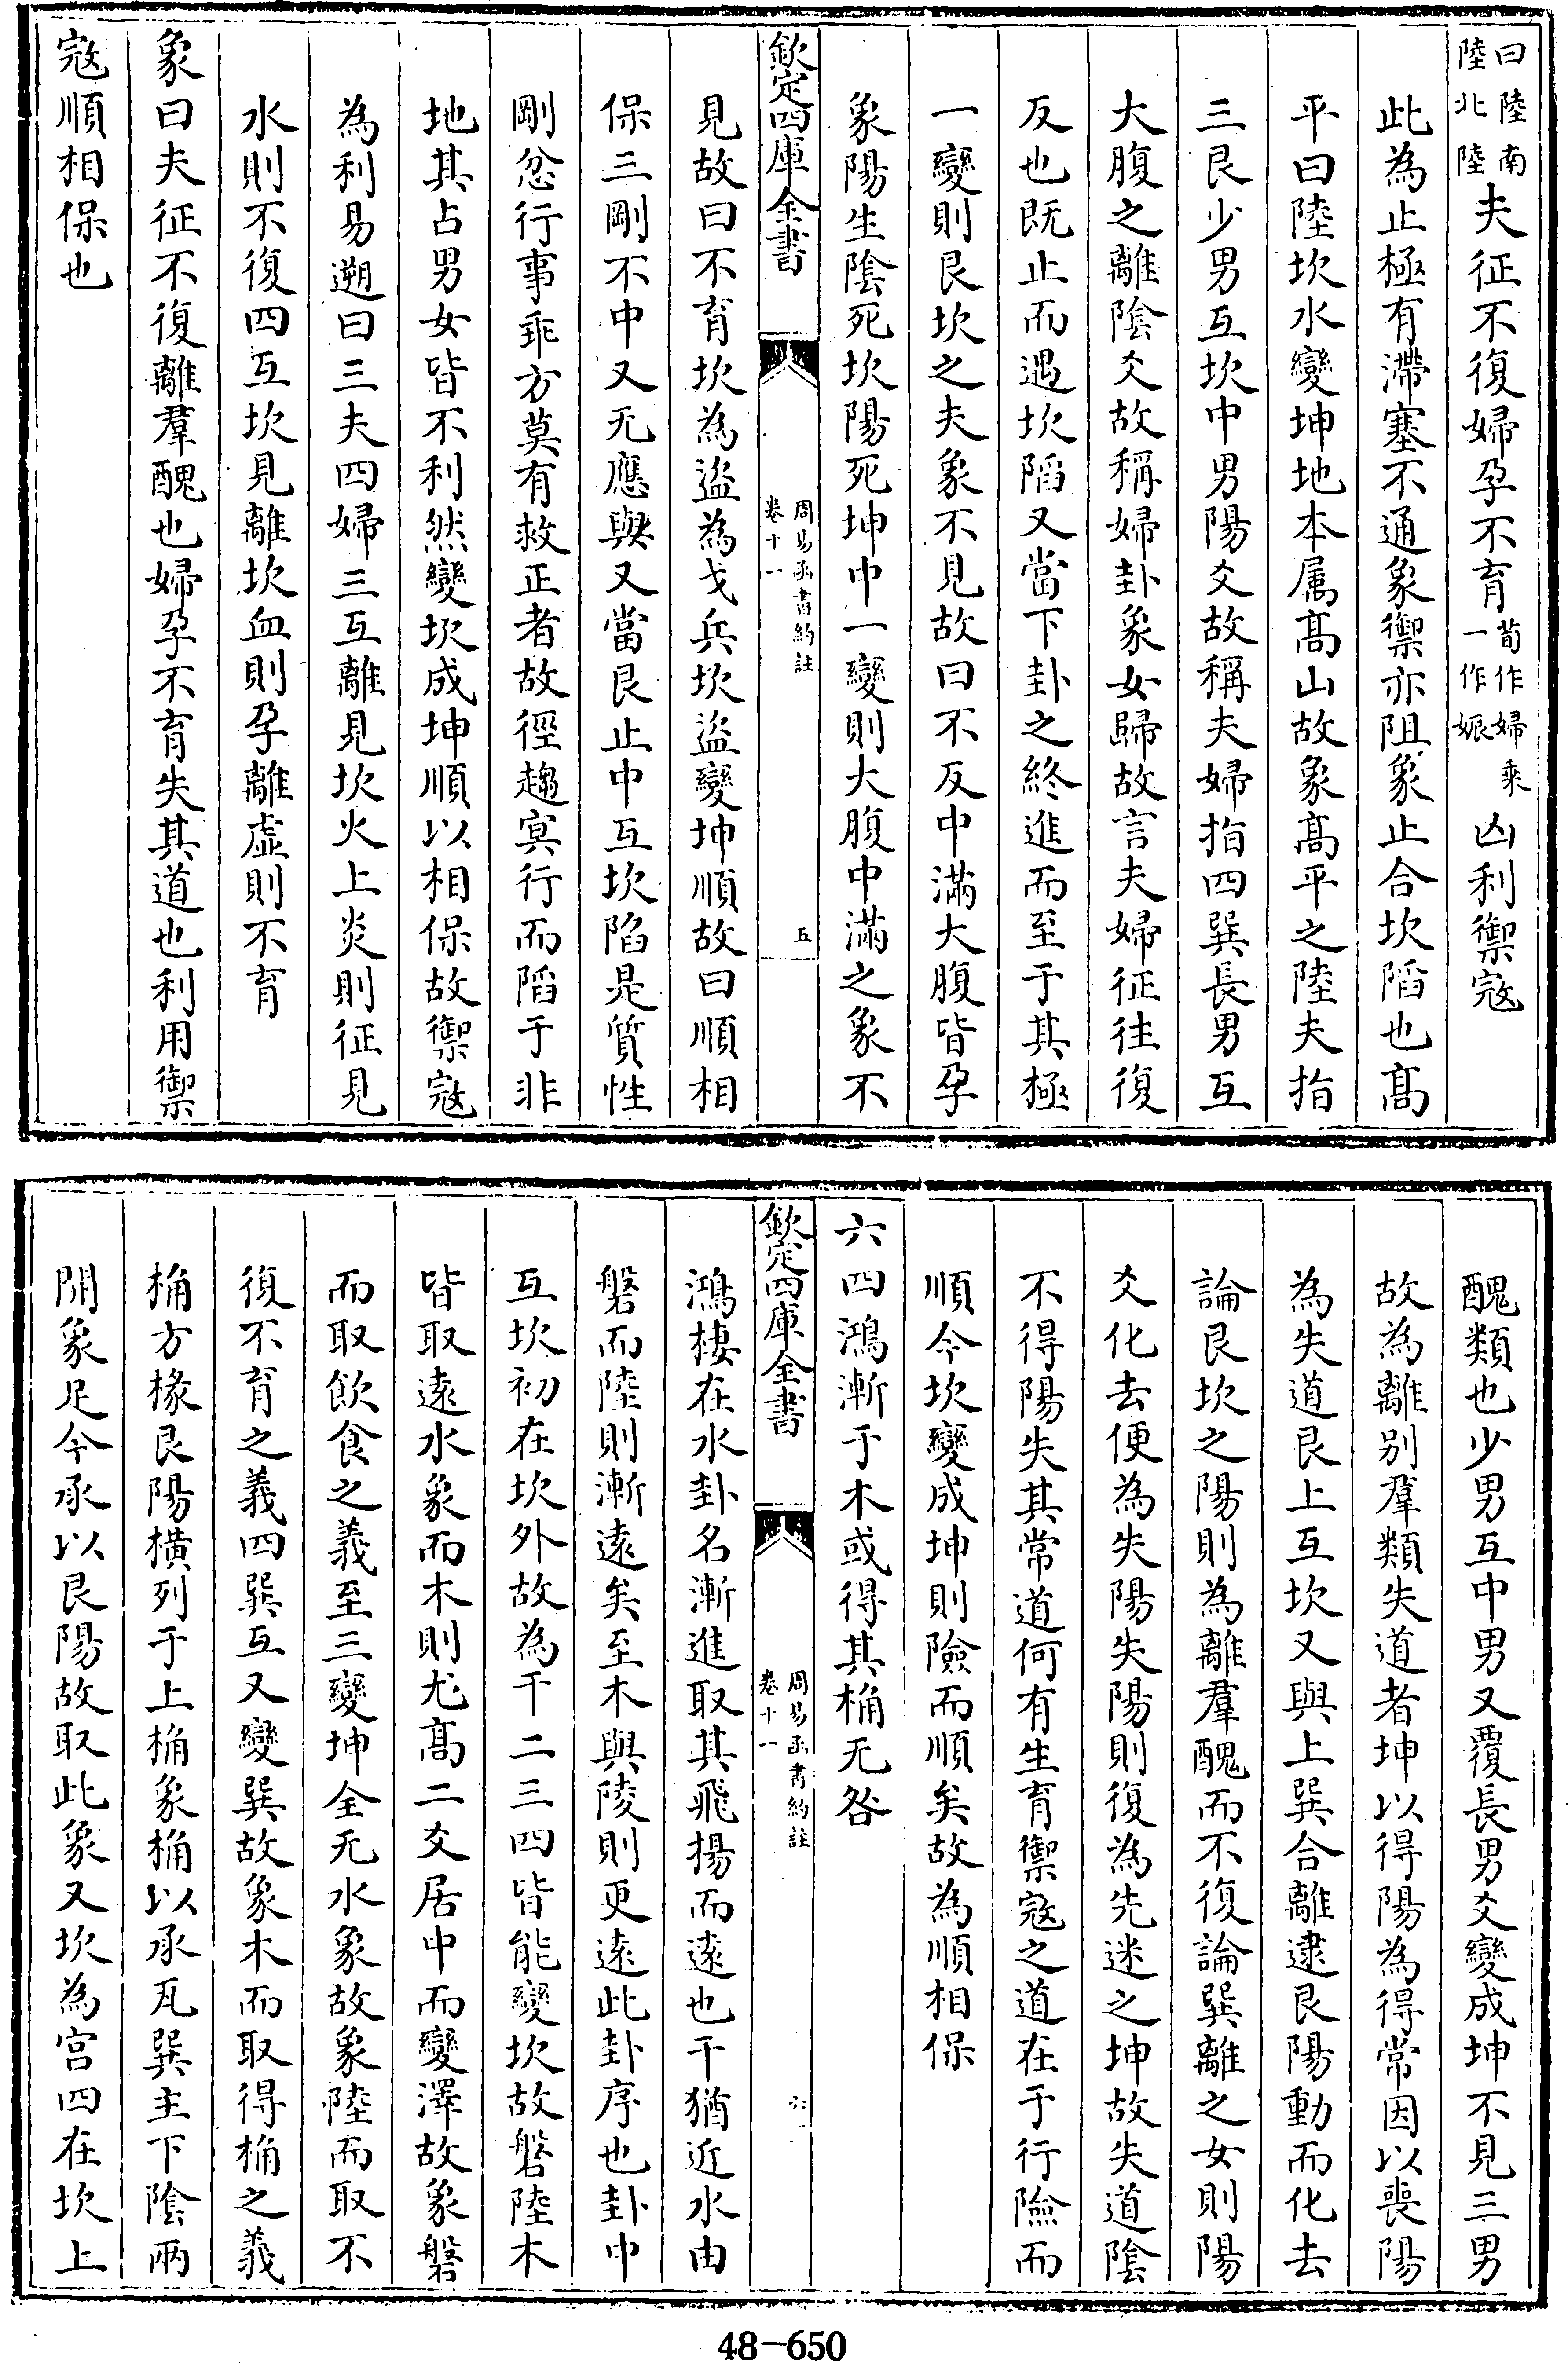 曰陸南陸北陸夫征不復婦孕不育荀作婦乘一作娠凶利禦寇
此為止極有滯塞不通象禦亦阻象止合坎陷也髙
平曰陸坎水變坤地本属髙山故象髙平之陸夫指
三艮少男互坎中男陽爻故稱夫婦指四巽長男互
大腹之離陰爻故稱婦卦象女歸故言夫婦征往復
反也既止而遇坎陷又當下卦之終進而至于其極
一變則艮坎之夫象不見故曰不反中滿大腹皆孕
象陽生陰死坎陽死坤中一變則大腹中滿之象不
欽定四庫全書 周易函書約註 卷十一 五
見故曰不育坎為盜為戈兵坎盜變坤順故曰順相
保三剛不中又无應與又當艮止中互坎陷是質性
剛忿行事乖方莫有救正者故徑趨冥行而陷于非
地其占男女皆不利然變坎成坤順以相保故禦寇
為利易遡曰三夫四婦三互離見坎火上炎則征見
水則不復四互坎見離坎血則孕離虛則不育
象曰夫征不復離羣醜也婦孕不育失其道也利用禦
寇順相保也
醜類也少男互中男又覆長男爻變成坤不見三男
故為離别羣類失道者坤以得陽為得常因以喪陽
為失道艮上互坎又與上巽合離逮艮陽動而化去
論艮坎之陽則為離羣醜而不復論巽離之女則陽
爻化去便為失陽失陽則復為先迷之坤故失道陰
不得陽失其常道何有生育禦寇之道在于行險而
順今坎變成坤則險而順矣故為順相保
六四鴻漸于木或得其桷无咎
欽定四庫全書 周易函書約註 卷十一 六
鴻棲在水卦名漸進取其飛揚而遠也干猶近水由
磐而陸則漸遠矣至木與陵則更遠此卦序也卦中
互坎初在坎外故為干二三四皆能變坎故磐陸木
皆取遠水象而木則尤髙二爻居中而變澤故象磐
而取飲食之義至三變坤全无水象故象陸而取不
復不育之義四巽互又變巽故象木而取得桷之義
桷方椽艮陽橫列于上桷象桷以承瓦巽主下陰兩
開象足今承以艮陽故取此象又坎為宫四在坎上
48-650